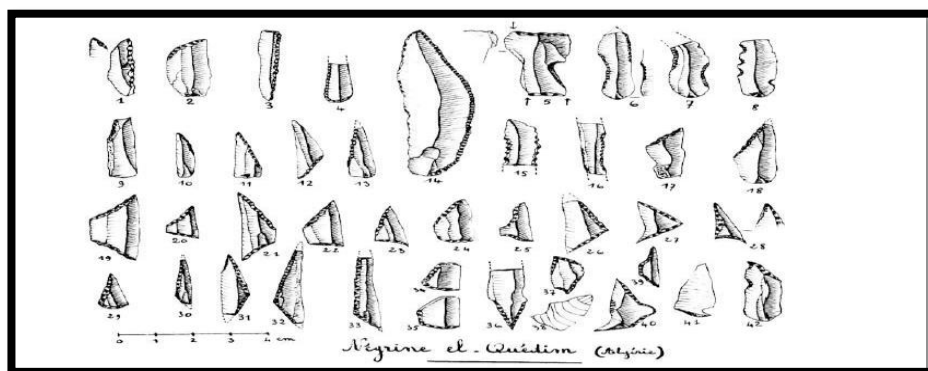 1 2 3 4 14 5 6 7 8
9 10 11 12 13 15 16 17 18
19 20 21 22 23 24 25 26 27 28
29 30 31 32 33 34 35 36 37 38 39 40 41 42
0 1 2 3 4 cm
Négrine el-Quédim (Algérie)